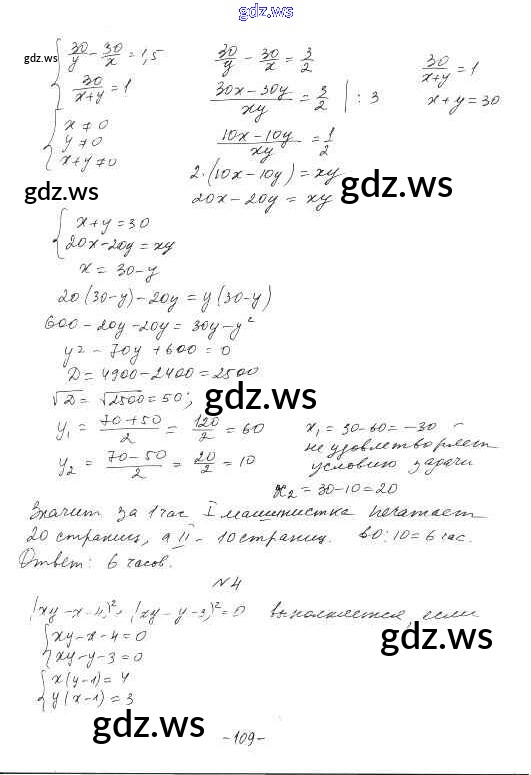 gdz.ws
30/y - 30/x = 1,5
30/(x+y) = 1
x ≠ 0
y ≠ 0
x+y ≠ 0
30/y - 30/x = 3/2
(30x-30y)/xy = 3/2 | : 3
(10x-10y)/xy = 1/2
2·(10x-10y) = xy
20x-20y = xy
30/(x+y) = 1
x+y = 30
gdz.ws
gdz.ws
gdz.ws
x+y = 30
20x-20y = xy
x = 30-y
20(30-y)-20y = y(30-y)
600-20y-20y = 30y-y²
y²-70y+600 = 0
D = 4900-2400 = 2500
√D = √2500 = 50;
gdz.ws
y₁ = (70+50)/2 = 120/2 = 60
y₂ = (70-50)/2 = 20/2 = 10
x₁ = 30-60 = -30 -
не удовлетворяет
условию задачи
x₂ = 30-10 = 20
Значит за 1 час I машинистка печатает
20 страниц, а II - 10 страниц. 60:10 = 6 час.
Ответ: 6 часов.
N4
(xy-x-4)²+(xy-y-3)² = 0 выполняется, если
xy-x-4 = 0
xy-y-3 = 0
x(y-1) = 4
y(x-1) = 3
gdz.ws
gdz.ws
-109-